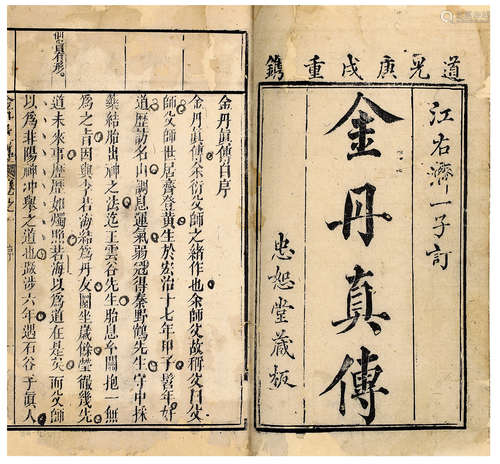 道光庚戌重鐫
江右濟一子訂
金丹真傳
忠恕堂藏板
金丹眞傳自序
金丹眞傳余衍父師之緒作也余師父故稱父師父
師父師世居齊登黄生於宏治十七年甲子髫年好
道歷訪名山調息運氣弱冠得秦野鶴先生守中採
藥結胎出神之法迄王雲谷先生胎息
抱一無
為之旨因與李若海結為丹友圜坐歲餘瑩徹幾先
道未來事歷歷如燭照若海以為道在是矣而父師
以為非陽神冲舉之道也跋涉六年遇石谷子眞人
序